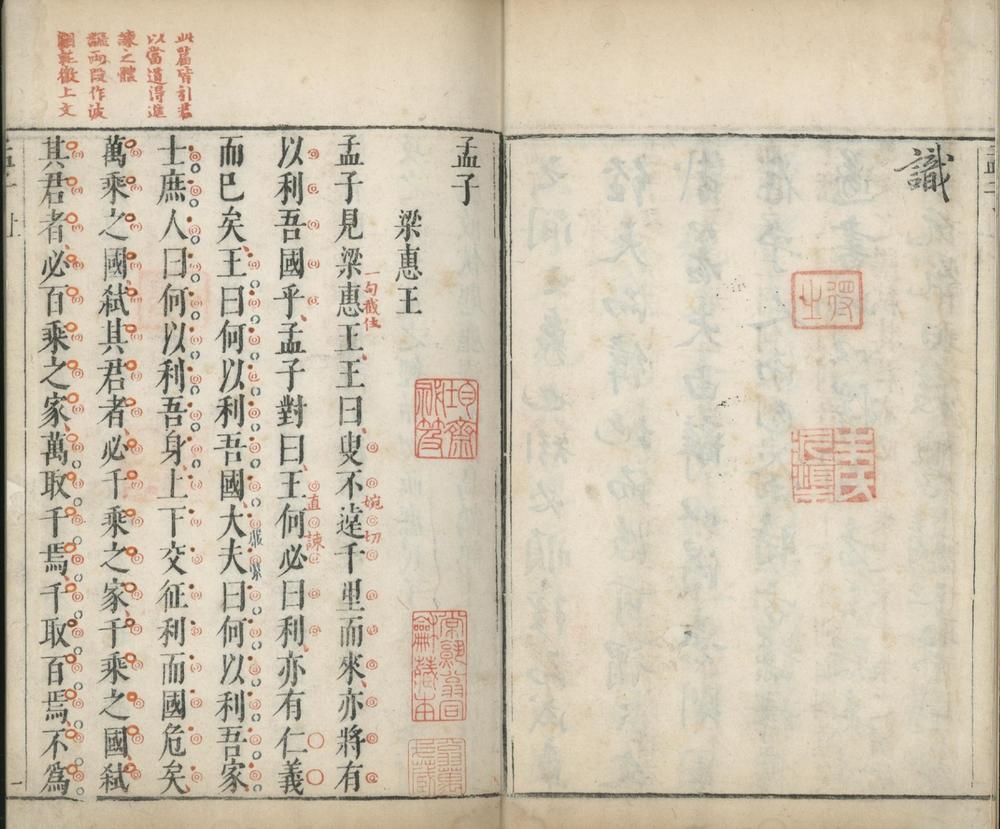 識
孟子
梁惠王
孟子見梁惠王王曰叟不遠千里而來亦將有
以利吾國乎孟子對曰王何必曰利亦有仁義
而已矣王曰何以利吾國大夫曰何以利吾家
士庶人曰何以利吾身上下交征利而國危矣
萬乘之國弒其君者必千乘之家千乘之國弒
其君者必百乘之家萬取千焉千取百焉不為
此篇皆引君
以當道得進
諫之體
兩段作波
上文
一句截住
婉切
直諫